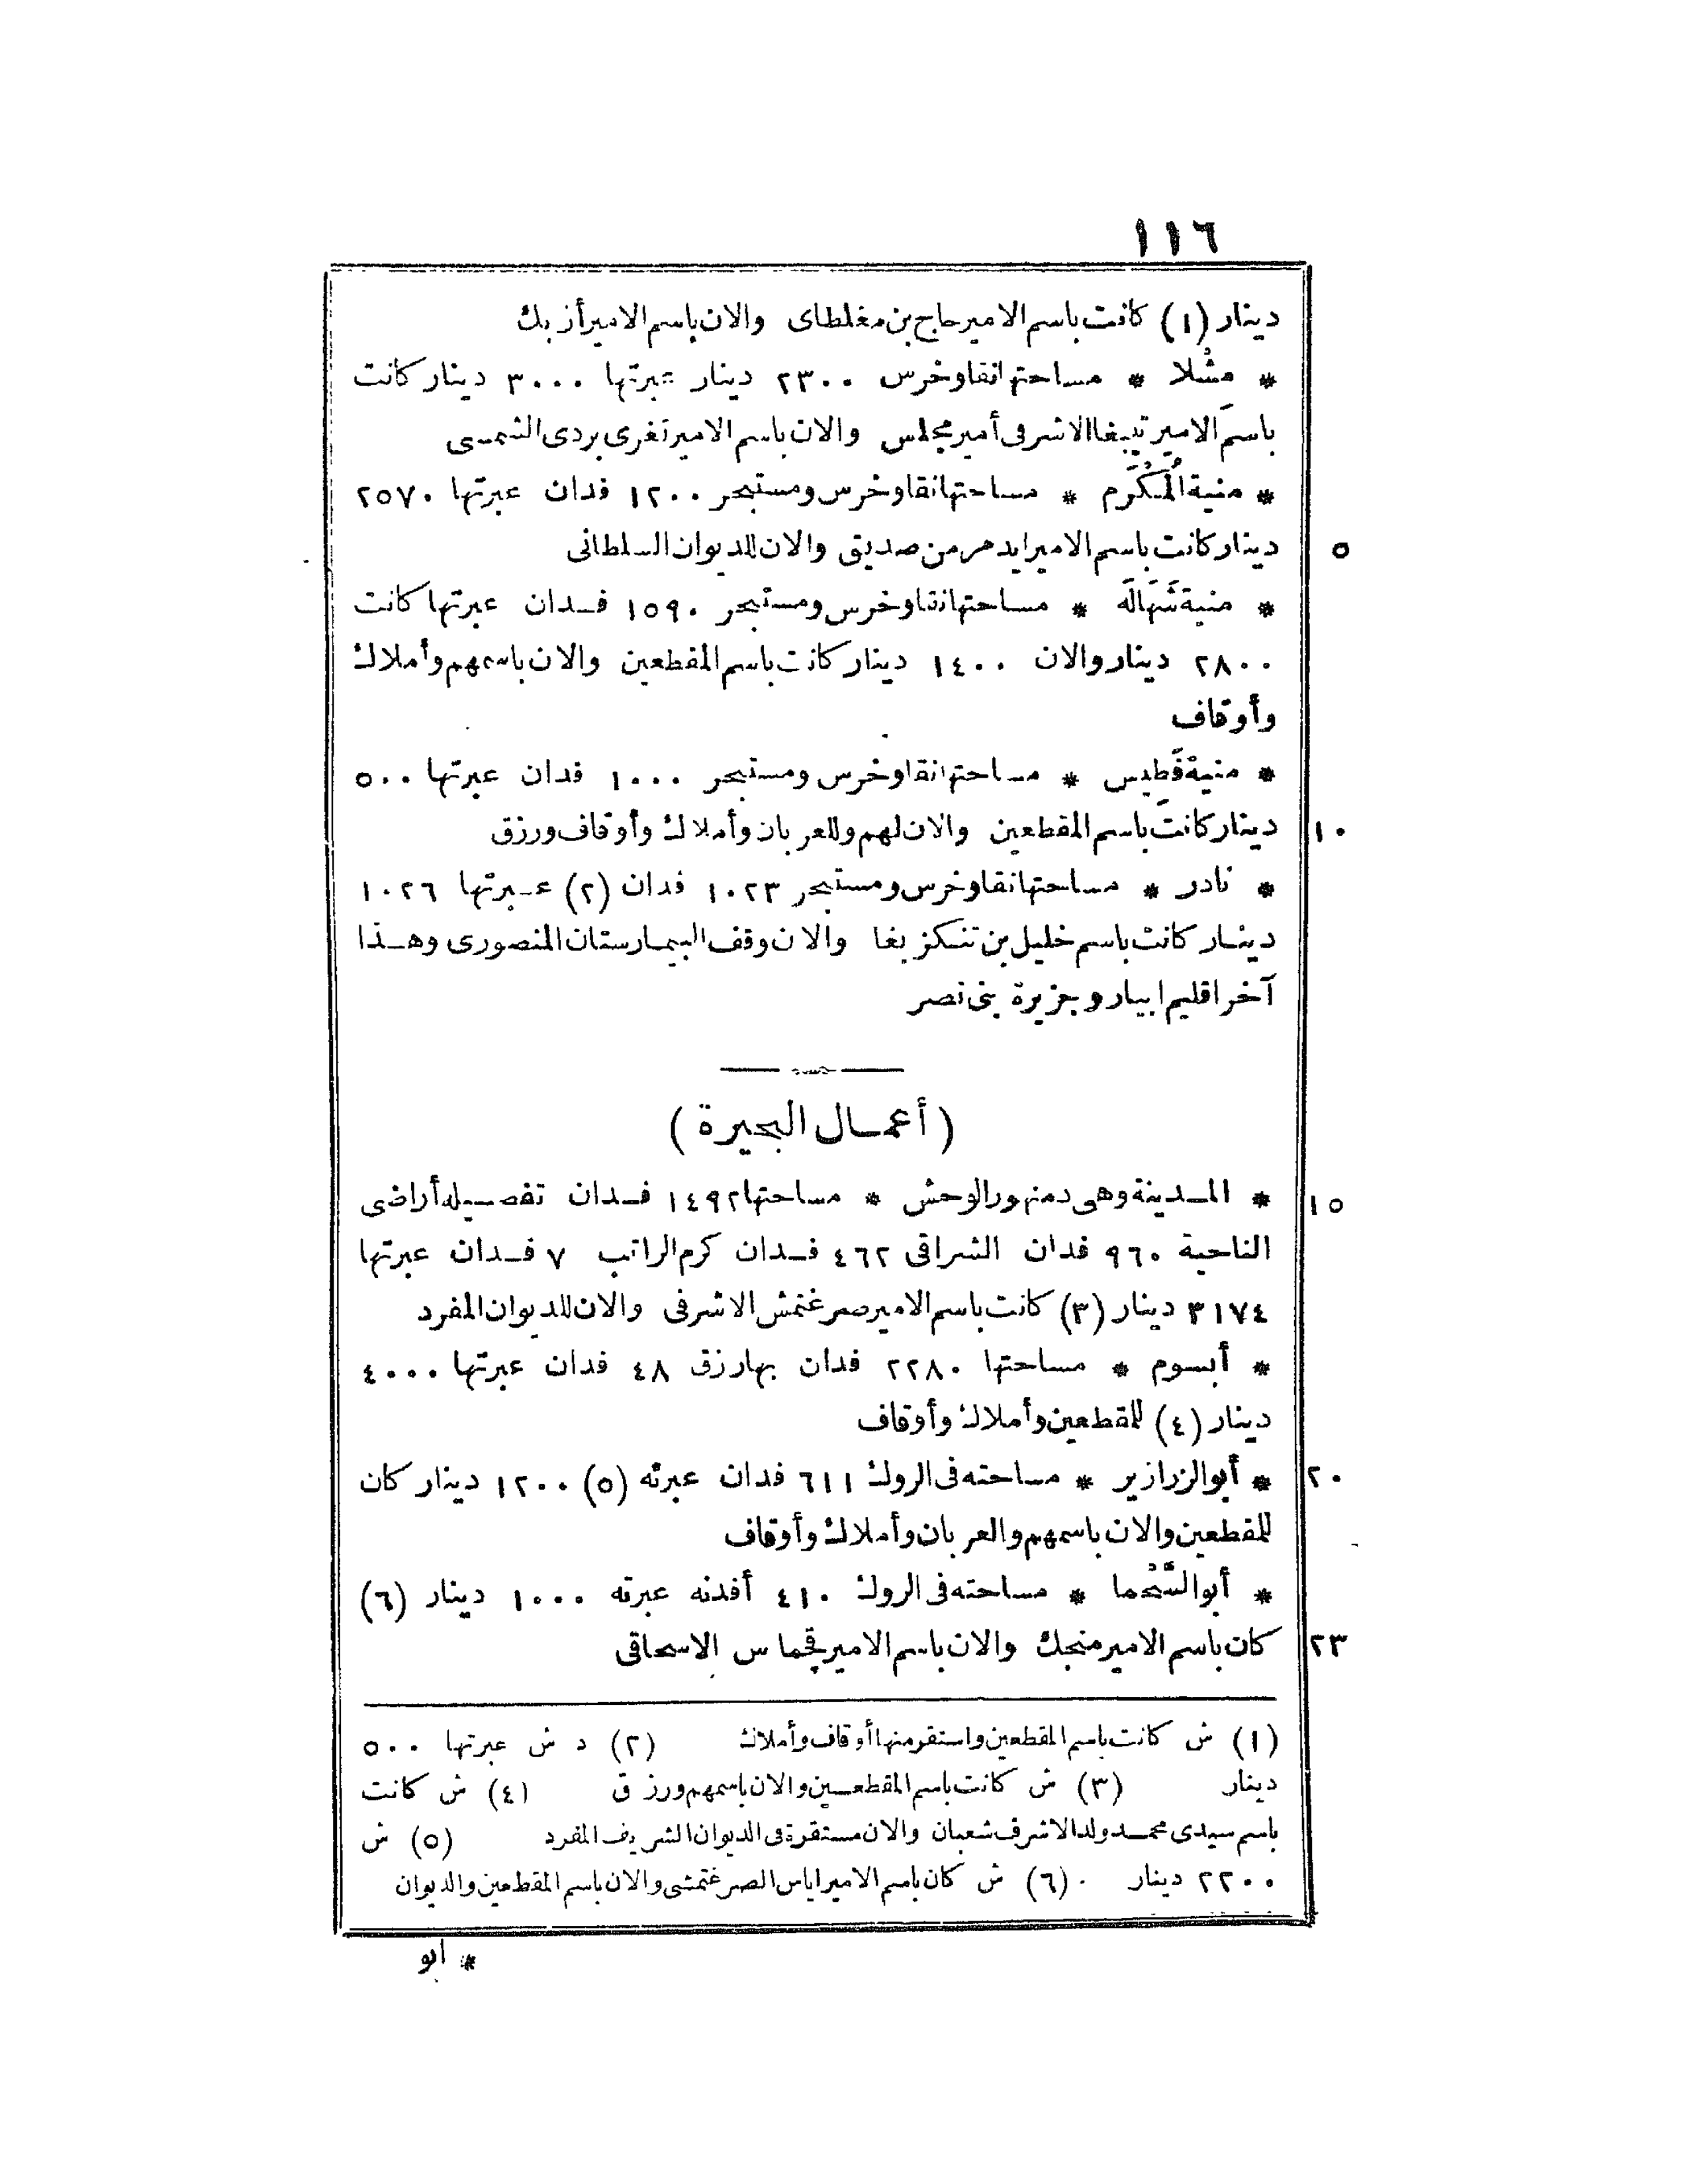 ١١٦
دينار (١) كانت باسم الامير حاج بن مغلطاى والان باسم الامير أزبك
* مشلا * مساحتها نقا وخرس ٢٣٠٠ دينار عبرتها ٣٠٠٠ دينار كانت
باسم الامير تيبغا الاشرفى أمير مجلس والان باسم الامير تغرى بردى الشمسى
* منية المُكْرَم * مساحتها نقا وخرس ومستبحر ١٢٠٠ فدان عبرتها ٢٥٧٠
٥ دينار كانت باسم الامير ايدمر من صديق والان للديوان السلطانى
* منية شَهَالَه * مساحتها نقا وخرس ومستبحر ١٥٩٠ فدان عبرتها كانت
٢٨٠٠ دينار والان ١٤٠٠ دينار كانت باسم المقطعين والان باسمهم وأملاك
وأوقاف
* منية قَطِيس * مساحتها نقا وخرس ومستبحر ١٠٠٠ فدان عبرتها ٥٠٠
١٠ دينار كانت باسم المقطعين والان لهم وللعربان وأملاك وأوقاف ورزق
* نادر * مساحتها نقا وخرس ومستبحر ١٠٢٣ فدان (٢) عبرتها ١٠٢٦
دينار كانت باسم خليل بن تنكز بغا والان وقف البيمارستان المنصورى وهذا
آخر اقليم ابيار وجزيرة بنى نصر
(أعمال البحيرة)
١٥ * المدينة وهى دمنهور الوحش * مساحتها ١٤٩٢ فدان تفصيله أراضى
الناحية ٩٦٠ فدان الشراقى ٤٦٢ فدان كرم الراتب ٧ فدان عبرتها
٣١٧٤ دينار (٣) كانت باسم الامير صرغتمش الاشرفى والان للديوان المفرد
* أبسوم * مساحتها ٢٢٨٠ فدان بها رزق ٤٨ فدان عبرتها ٤٠٠٠
دينار (٤) للمقطعين وأملاك وأوقاف
٢٠ * أبو الزرازير * مساحته فى الروك ٦١١ فدان عبرته (٥) ١٢٠٠ دينار كان
للمقطعين والان باسمهم والعربان وأملاك وأوقاف
* أبو السَّحْما * مساحته فى الروك ٤١٠ أفدنه عبرته ١٠٠٠ دينار (٦)
٢٣ كان باسم الامير منجك والان باسم الامير قجماس الاسحاقى
(١) ش كانت باسم المقطعين واستقر منها أوقاف وأملاك (٢) د ش عبرتها ٥٠٠
دينار (٣) ش كانت باسم المقطعين والان باسمهم ورزق (٤) ش كانت
باسم سيدى محمد ولد الاشرف شعبان والان مستقرة فى الديوان الشريف المفرد (٥) ش
٢٢٠٠ دينار (٦) ش كان باسم الامير اياس الصرغتمشى والان باسم المقطعين والديوان
* ابو